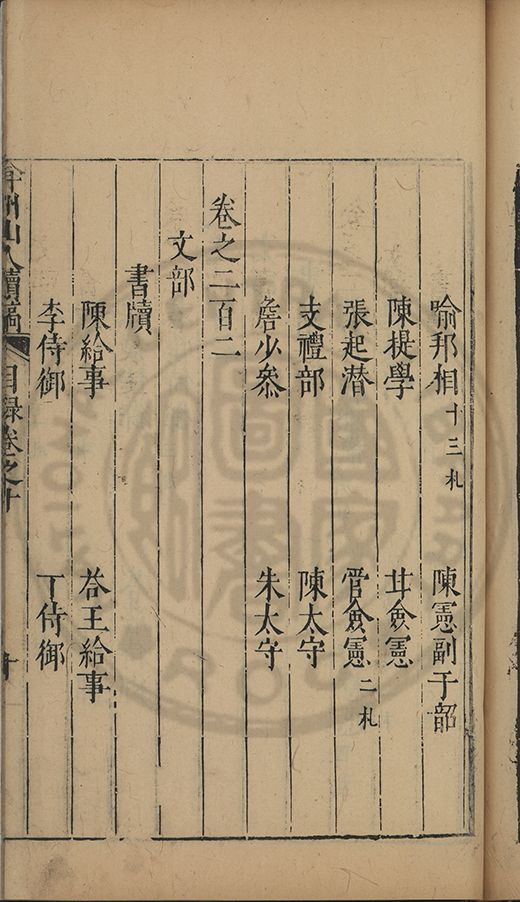 喻邦相十三札　陳憲副于韶
陳提學　甘僉憲
張起潜　管僉憲二札
支禮部　陳太守
詹少叅　朱太守
卷之二百二
文部
書牘
陳給事　荅王給事
李侍御　丁侍御
弇州山人續稿　目録卷之十